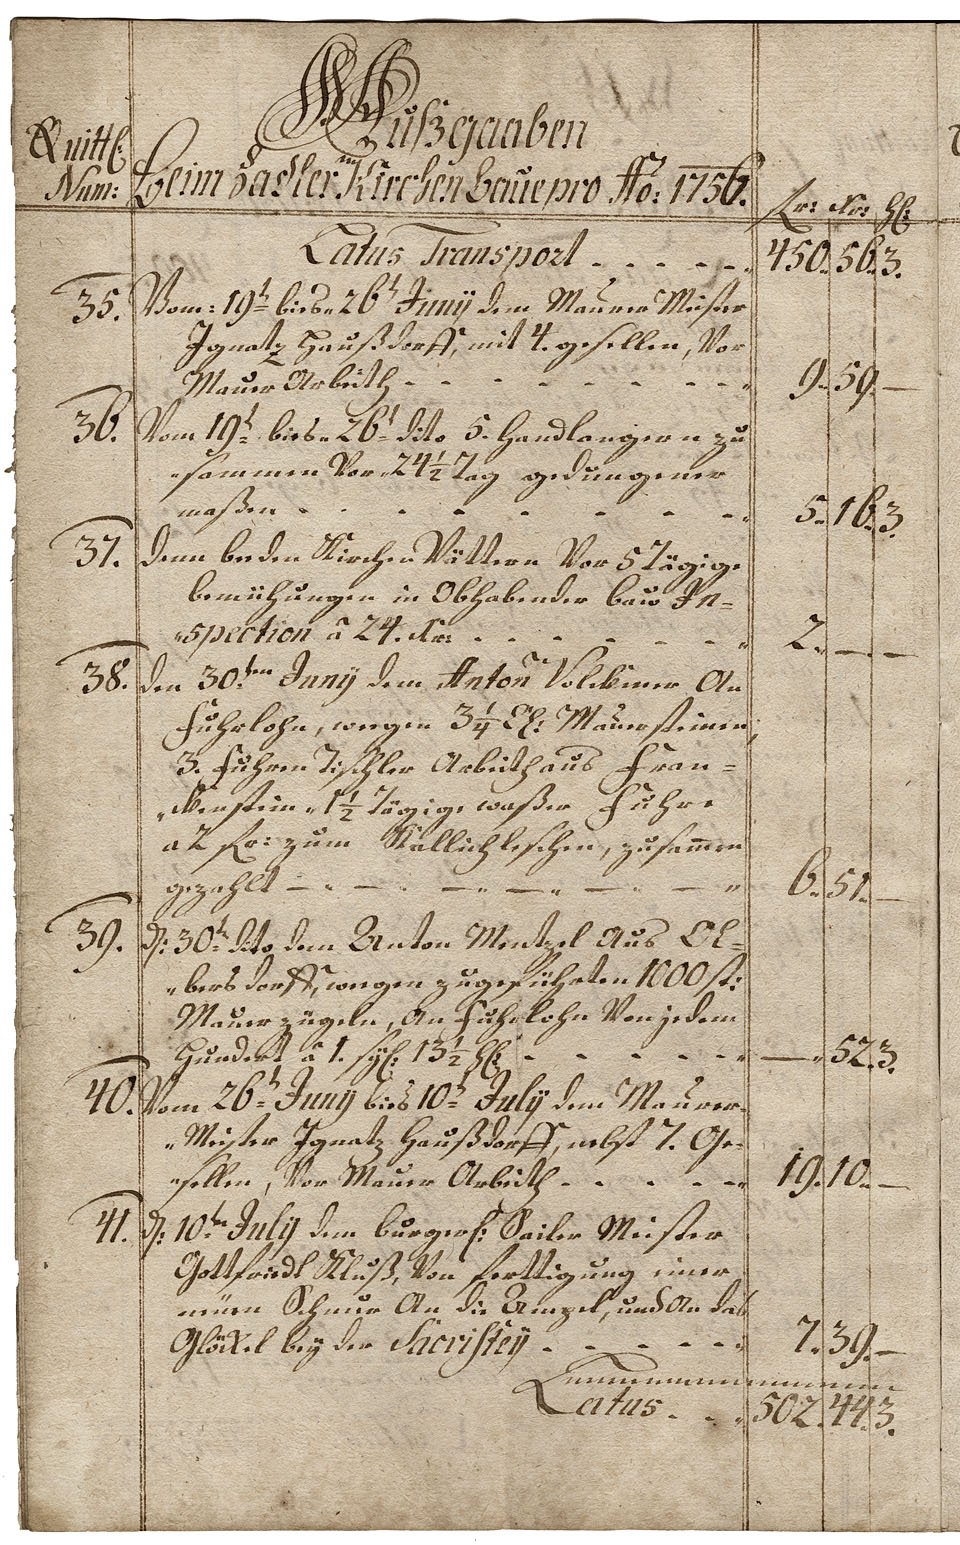 Außgaaben
Quitt:
Num: beim Zadler Kirchen baue pro Ao: 1756.
fr: Kr: hl:
Latus Transport 450. 56. 3.
35. Vom: 19t bies 26t Juny dem Maurer Meister
Ignatz Haußdorff, mit 4. gesellen, Vor
Mauer Arbeith 9. 59. —
36. Vom 19t bies 26t dito 5. Handlangern zu
sammen Vor 24 1/2 Tag gedungener
maßen 5. 16. 3.
37. denn beeden Kirchen Vättern Vor 5 Tägige
bemühungen in Obhabender bau In=
spection â 24. Kr: 2. — —
38. den 30ten Juny dem Anton Volckmer An
Fuhrlohn, wegen 3 1/4 Mauersteinen,
3. Fuhren Tischler Arbeith aus Fran=
kenstein 1 1/2 Tägige waßer Fuhre
a 2 fr: zum Kallichleschen, zusammen
gezahlt 6. 51. —
39. d: 30t dito dem Anton Mentzel Aus Ol=
bersdorff, wegen zugeführten 1000 st:
Mauerzügeln, An Fuhrlohn Von jedem
Hundert â 1. sgl: 13 1/2 hl: — 52. 3.
40. Vom 26t Juny bies 10t July dem Maurer
Meister Ignatz Haußdorff, nebst 7. Ge=
sellen, Vor Mauer Arbeith 19. 10. —
41. d: 10ten July dem burgerl: Sailer Meister
Gottfriedt Kluß, Von ferttigung einer
neuen Schnur An die Ampel, und An das
Glöckel bey der Sacristey 7. 39. —
Latus 502. 44. 3.